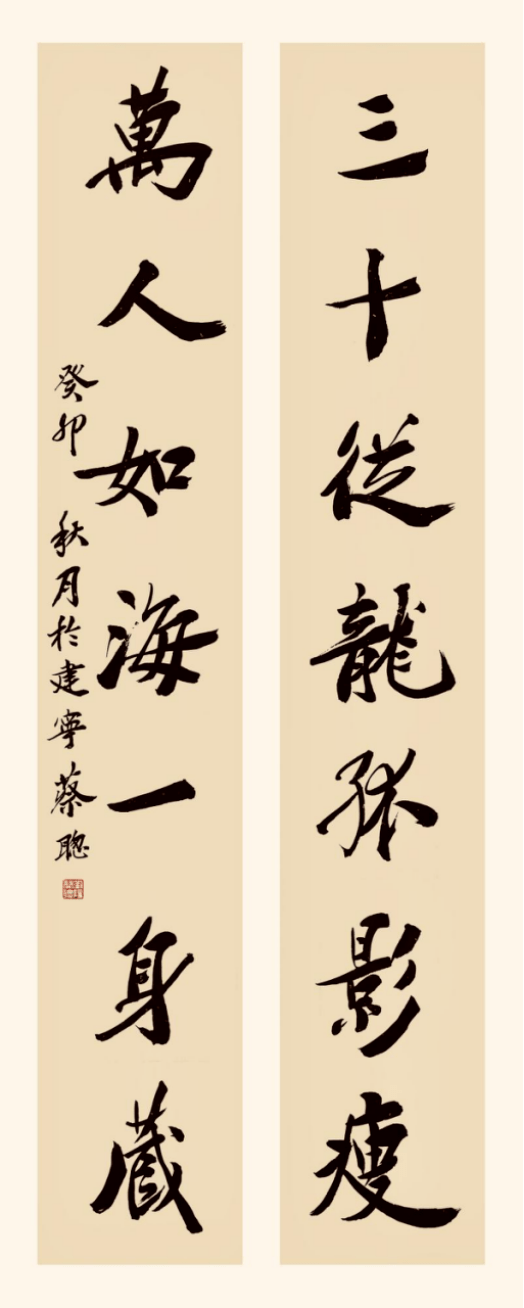 三十從龍孤影瘦
萬人如海一身藏
癸卯 秋月於建寧蔡聰